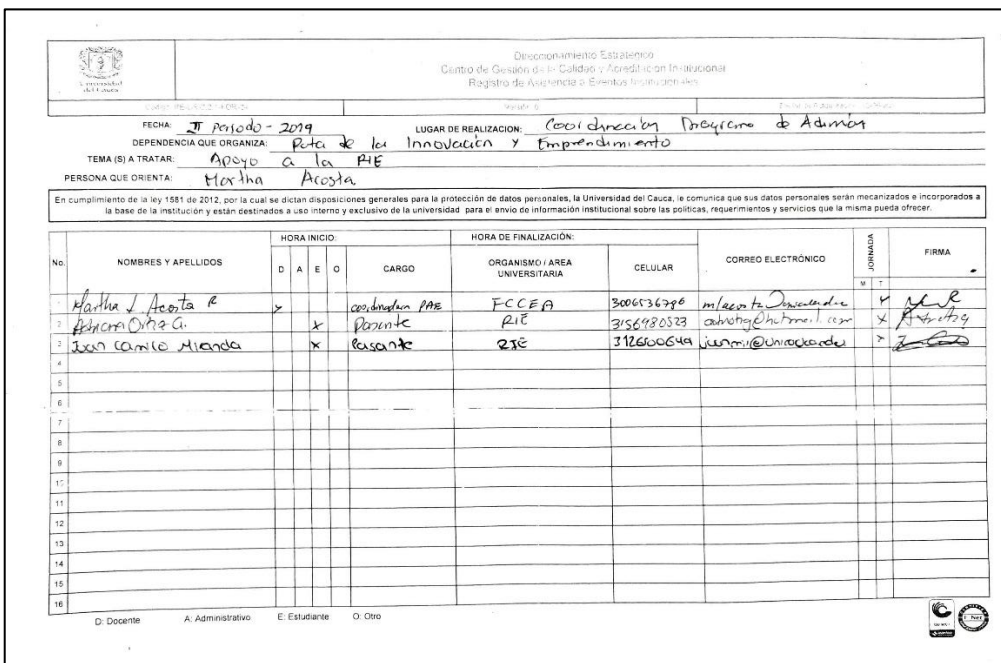 Universidad del Cauca
Direccionamiento Estratégico
Centro de Gestión de la Calidad y Acreditación Institucional
Registro de Asistencia a Eventos Institucionales
FECHA: II Periodo - 2019 LUGAR DE REALIZACION: Coordinación Programa de Admón
DEPENDENCIA QUE ORGANIZA: Ruta de la Innovación y Emprendimiento
TEMA (S) A TRATAR: Apoyo a la RIE
PERSONA QUE ORIENTA: Martha Acosta
En cumplimiento de la ley 1581 de 2012, por la cual se dictan disposiciones generales para la protección de datos personales, la Universidad del Cauca, le comunica que sus datos personales serán mecanizados e incorporados a
la base de la institución y están destinados a uso interno y exclusivo de la universidad para el envio de información institucional sobre las políticas, requerimientos y servicios que la misma pueda ofrecer.
HORA INICIO: HORA DE FINALIZACIÓN:
No. NOMBRES Y APELLIDOS D A E O CARGO ORGANISMO / AREA UNIVERSITARIA CELULAR CORREO ELECTRÓNICO JORNADA M T FIRMA
1 Martha L Acosta R x coordinadora PAE FCCEA 3006536796 x
2 Adriana Ortiz G. x Pasante RIE 3156980523 x
3 Juan Camilo Miranda x Pasante RIE 3126500649 x
4
5
6
7
8
9
10
11
12
13
14
15
16
D: Docente A: Administrativo E: Estudiante O: Otro